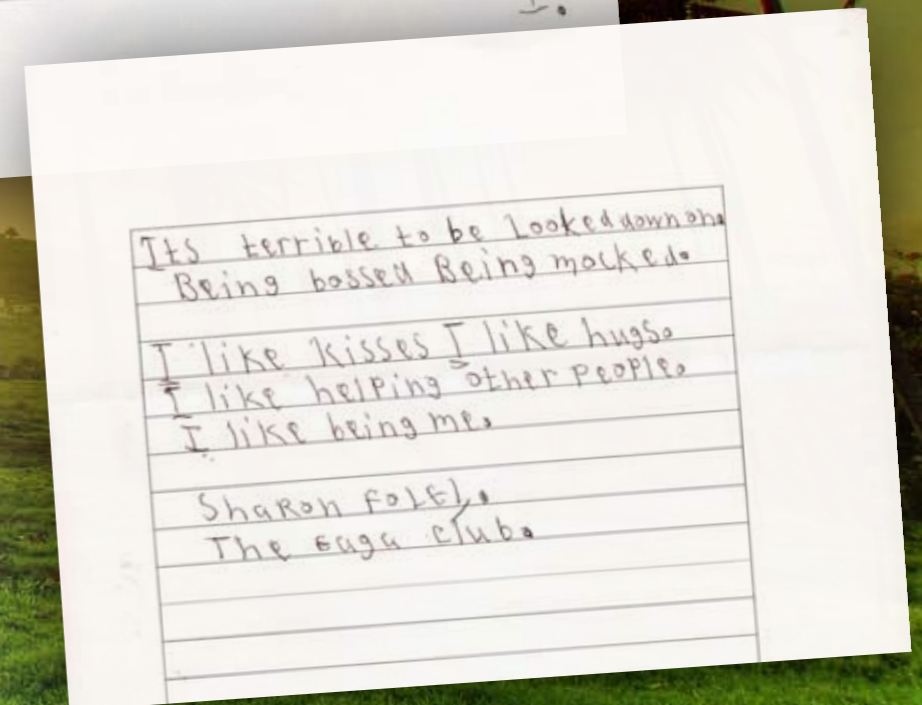 Its terrible to be Looked down on.
Being bossed Being mocked.
I like kisses I like hugs.
I like helping other people.
I like being me.
Sharon
The Gaga club.